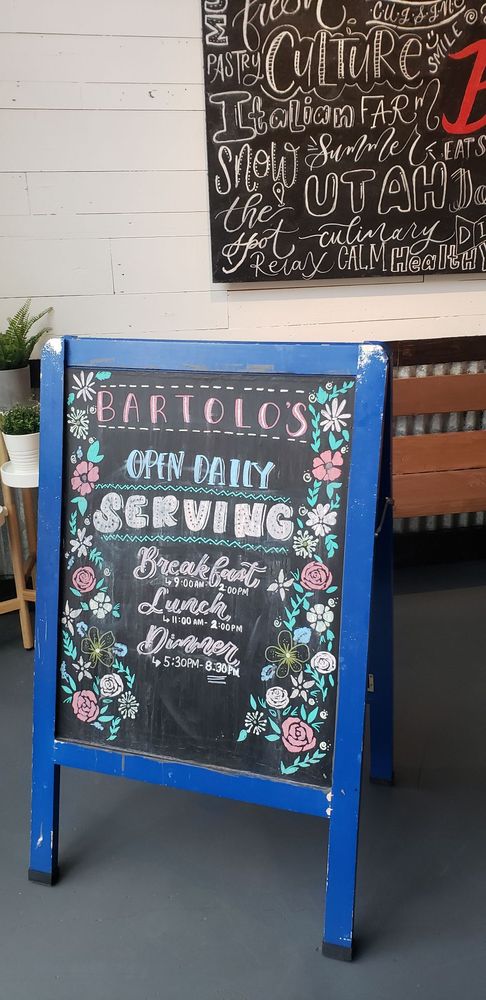 fresh
CUISINE
PASTRY CULTURE SMILE
Italian FARM
SNOW Summer EATS
the UTAH
spot culinary
RELAX CALM HEALTHY
BARTOLO'S
OPEN DAILY
SERVING
Breakfast
↳ 9:00AM - 2:00PM
Lunch
↳ 11:00AM - 2:00PM
Dinner
↳ 5:30PM - 8:30PM